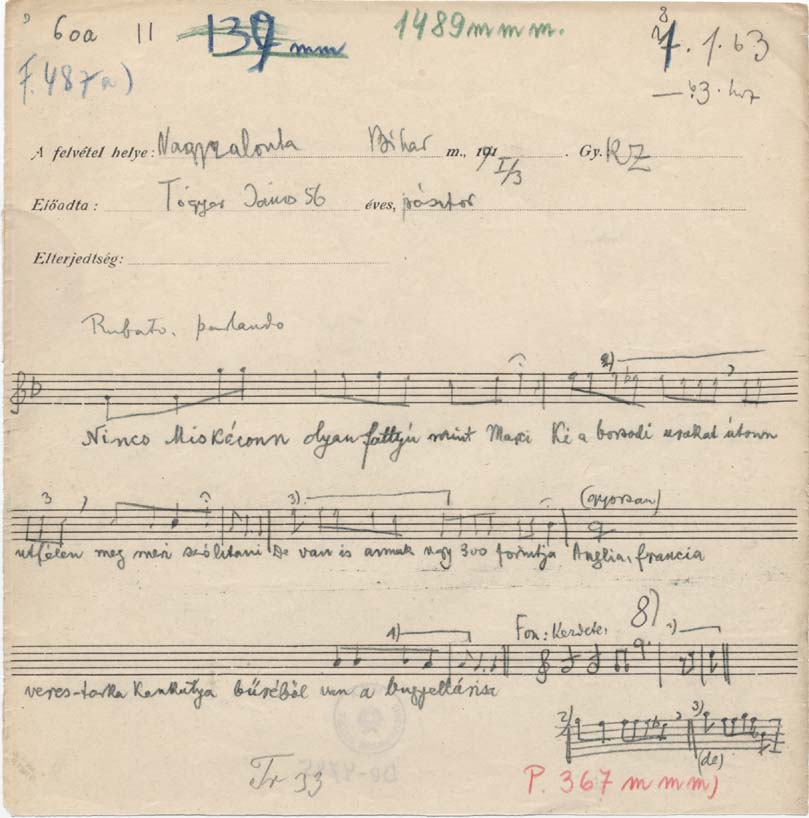 60a 11 139 mm 1489 m m m. 7. 1. 63
F. 487a)
A felvétel helye: Nagyszalonta Bihar m., 191 I/3. Gy. KZ
Előadta: Tógyer János 56 éves, pásztor
Elterjedtség:
Rubato. parlando
Nincs Miskóconn olyan fattyú mint Maxi Ki a borsodi urakat útonn
3 3) (gyorsan)
útfélen meg meri szólítani De van is annak vagy 300 forintja Anglia, francia
4) Fon: Kezdete: 8)
veres-tarka kankutya bűréből van a bugyellárisa
2) 3)
(de)
Tr 33 P. 367 m m m)